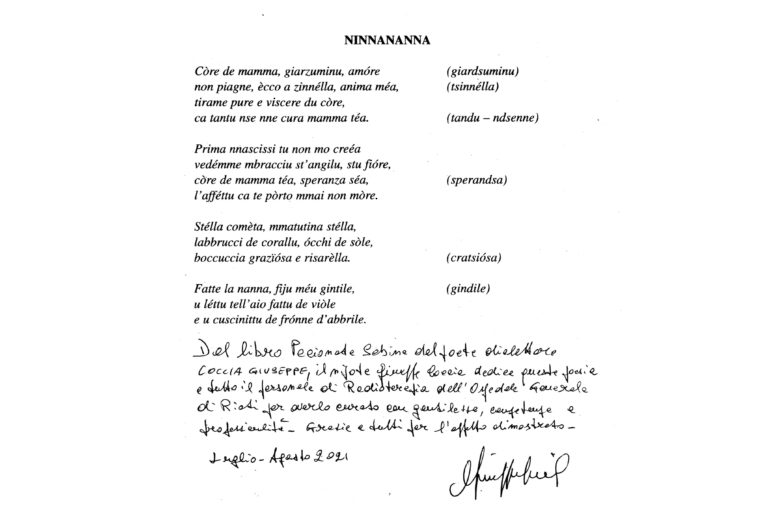 NINNANANNA
Còre de mamma, giarzuminu, amóre (giardsuminu)
non piagne, ècco a zinnélla, anima méa, (tsinnélla)
tirame pure e viscere du còre,
ca tantu nse nne cura mamma téa. (tandu – ndsenne)
Prima nnascissi tu non mo creéa
vedémme mbracciu st'angilu, stu fióre,
còre de mamma téa, speranza séa, (sperandsa)
l'afféttu ca te pòrto mmai non mòre.
Stélla comèta, mmatutina stélla,
labbrucci de corallu, ócchi de sòle,
boccuccia grazïósa e risarèlla. (cratsiósa)
Fatte la nanna, fiju méu gintile, (gindile)
u léttu tell'aio fattu de viòle
e u cuscinittu de frónne d'abbrile.
Dal libro Pecionate Sabine del poeta dialettale
COCCIA GIUSEPPE, il nipote Giuseppe Coccia dedica questa poesia
a tutto il personale di Radioterapia dell'Ospedale Generale
di Rieti per averlo curato con gentilezza, competenza e
professionalità - Grazie a tutti per l'affetto dimostrato -
Luglio - Agosto 2021